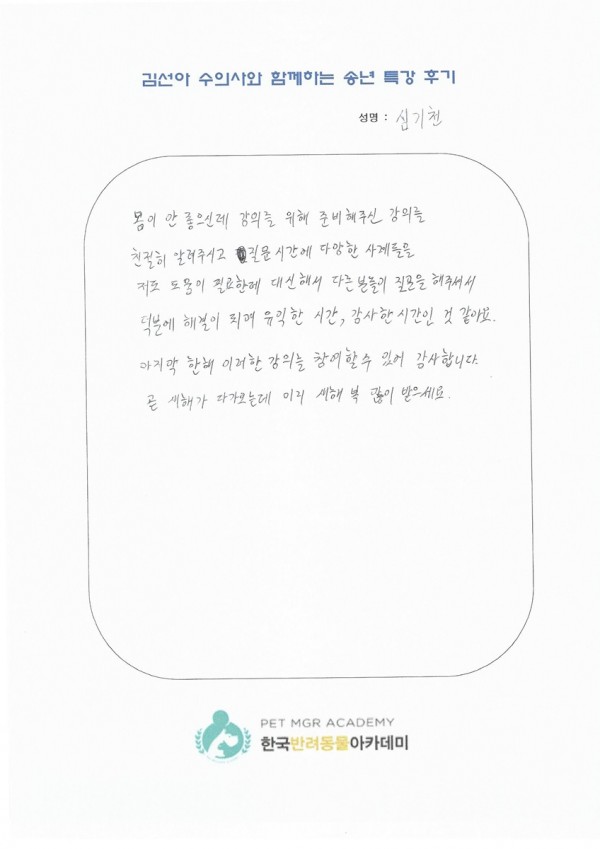 김선아 수의사와 함께하는 송년 특강 후기
성명 : 심기천
몸이 안 좋으신데 강의를 위해 준비해주신 강의를
친절히 알려주시고 질문시간에 다양한 사례들을
저도 도움이 필요한데 대신해서 다른분들이 질문을 해주셔서
덕분에 해결이 되며 유익한 시간, 감사한 시간인 것 같아요.
마지막 한해 이러한 강의를 참여할 수 있어 감사합니다.
곧 새해가 다가오는데 미리 새해 복 많이 받으세요.
PET MGR ACADEMY
한국반려동물아카데미